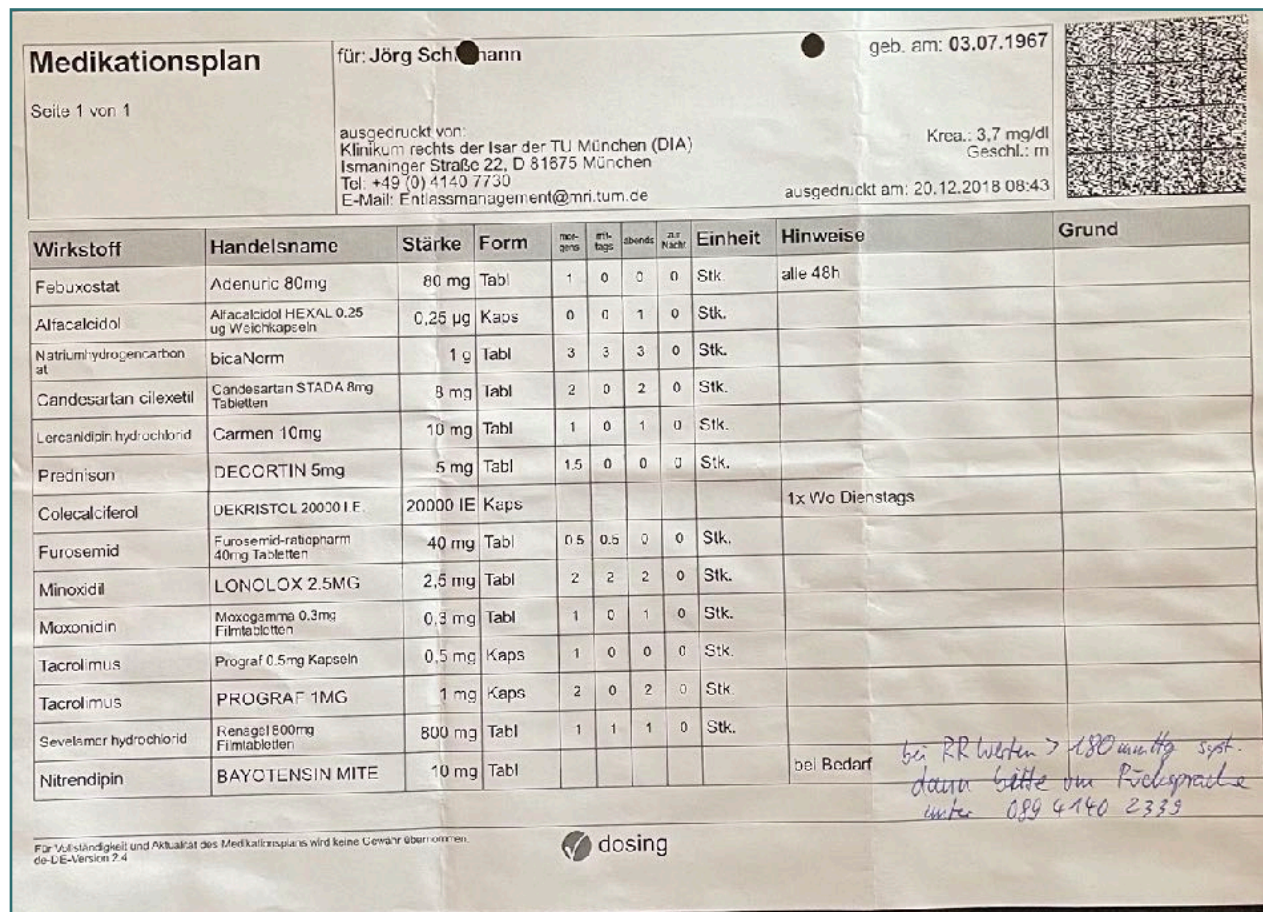 Medikationsplan
Seite 1 von 1
für: Jörg Sch mann
ausgedruckt von:
Klinikum rechts der Isar der TU München (DIA)
Ismaninger Straße 22, D 81675 München
Tel: +49 (0) 4140 7730
E-Mail: Entlassmanagement@mri.tum.de
geb. am: 03.07.1967
Krea.: 3,7 mg/dl
Geschl.: m
ausgedruckt am: 20.12.2018 08:43
Wirkstoff Handelsname Stärke Form mor-gens mit-tags abends zur Nacht Einheit Hinweise Grund
Febuxostat Adenuric 80mg 80 mg Tabl 1 0 0 0 Stk. alle 48h
Alfacalcidol Alfacalcidol HEXAL 0.25 ug Weichkapseln 0,25 µg Kaps 0 0 1 0 Stk.
Natriumhydrogencarbonat bicaNorm 1 g Tabl 3 3 3 0 Stk.
Candesartan cilexetil Candesartan STADA 8mg Tabletten 8 mg Tabl 2 0 2 0 Stk.
Lercanidipin hydrochlorid Carmen 10mg 10 mg Tabl 1 0 1 0 Stk.
Prednison DECORTIN 5mg 5 mg Tabl 1.5 0 0 0 Stk.
Colecalciferol DEKRISTOL 20000 I.E. 20000 IE Kaps 1x Wo Dienstags
Furosemid Furosemid-ratiopharm 40mg Tabletten 40 mg Tabl 0.5 0.5 0 0 Stk.
Minoxidil LONOLOX 2.5MG 2,5 mg Tabl 2 2 2 0 Stk.
Moxonidin Moxogamma 0.3mg Filmtabletten 0,3 mg Tabl 1 0 1 0 Stk.
Tacrolimus Prograf 0.5mg Kapseln 0,5 mg Kaps 1 0 0 0 Stk.
Tacrolimus PROGRAF 1MG 1 mg Kaps 2 0 2 0 Stk.
Sevelamer hydrochlorid Renagel 800mg Filmtabletten 800 mg Tabl 1 1 1 0 Stk.
Nitrendipin BAYOTENSIN MITE 10 mg Tabl bei Bedarf
bei RR Werten > 180 mmHg syst.
dann bitte um Rücksprache
unter 089 4140 2339
Für Vollständigkeit und Aktualität des Medikationsplans wird keine Gewähr übernommen.
de-DE-Version 2.4
dosing